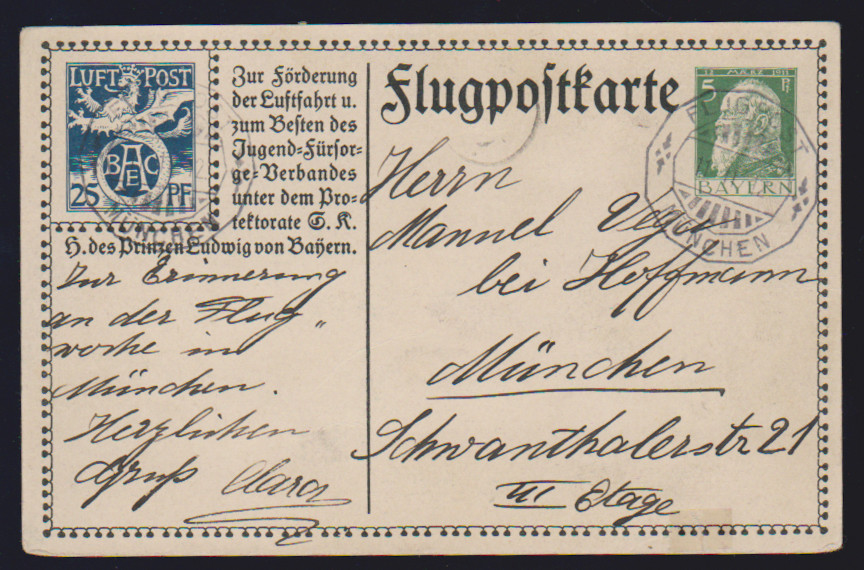 LUFT POST
BAEC
25 PF.
Zur Förderung
der Luftfahrt u.
zum Besten des
Jugend=Fürsor-
ge=Verbandes
unter dem Pro-
tektorate S. K.
H. des Prinzen Ludwig von Bayern.
Zur Erinnerung
an der Flug„
woche in
München.
Herzlichen
Gruß Clara
Flugpostkarte
12 MÄRZ 1911
5 Pf
BAYERN
FLUGPOST
MÜNCHEN
Herrn
Manuel
bei Hoffmann
München
Schwanthalerstr 21
III Etage